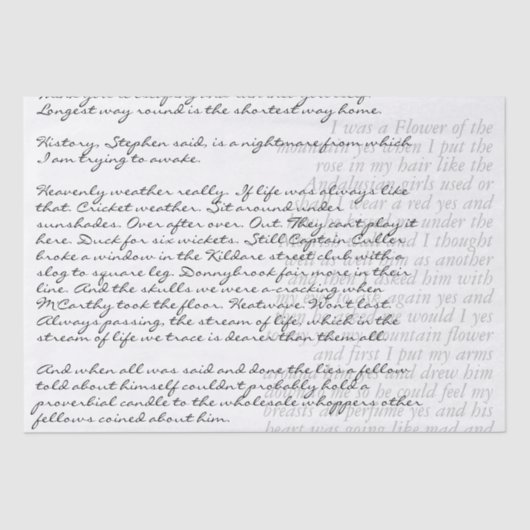 Longest way round is the shortest way home.
History, Stephen said, is a nightmare from which
I am trying to awake.
Heavenly weather really. If life was always like
that. Cricket weather. Sit around under
sunshades. Over after over. Out. They can't play it
here. Duck for six wickets. Still Captain Culler
broke a window in the Kildare street club with a
slog to square leg. Donnybrook fair more in their
line. And the skulls we were a-cracking when
M'Carthy took the floor. Heatwave. Won't last.
Always passing, the stream of life, which in the
stream of life we trace is dearer than them all.
And when all was said and done the lies a fellow
told about himself couldn't probably hold a
proverbial candle to the wholesale whoppers other
fellows coined about him.
I was a Flower of the
mountain yes when I put the
rose in my hair like the
Andalusian girls used or
shall I wear a red yes and
how he kissed me under the
wall and I thought
well as well him as another
and then I asked him with
my eyes to ask again yes and
then he asked me would I yes
yes my mountain flower
and first I put my arms
around him yes and drew him
down to me so he could feel my
breasts all perfume yes and his
heart was going like mad and